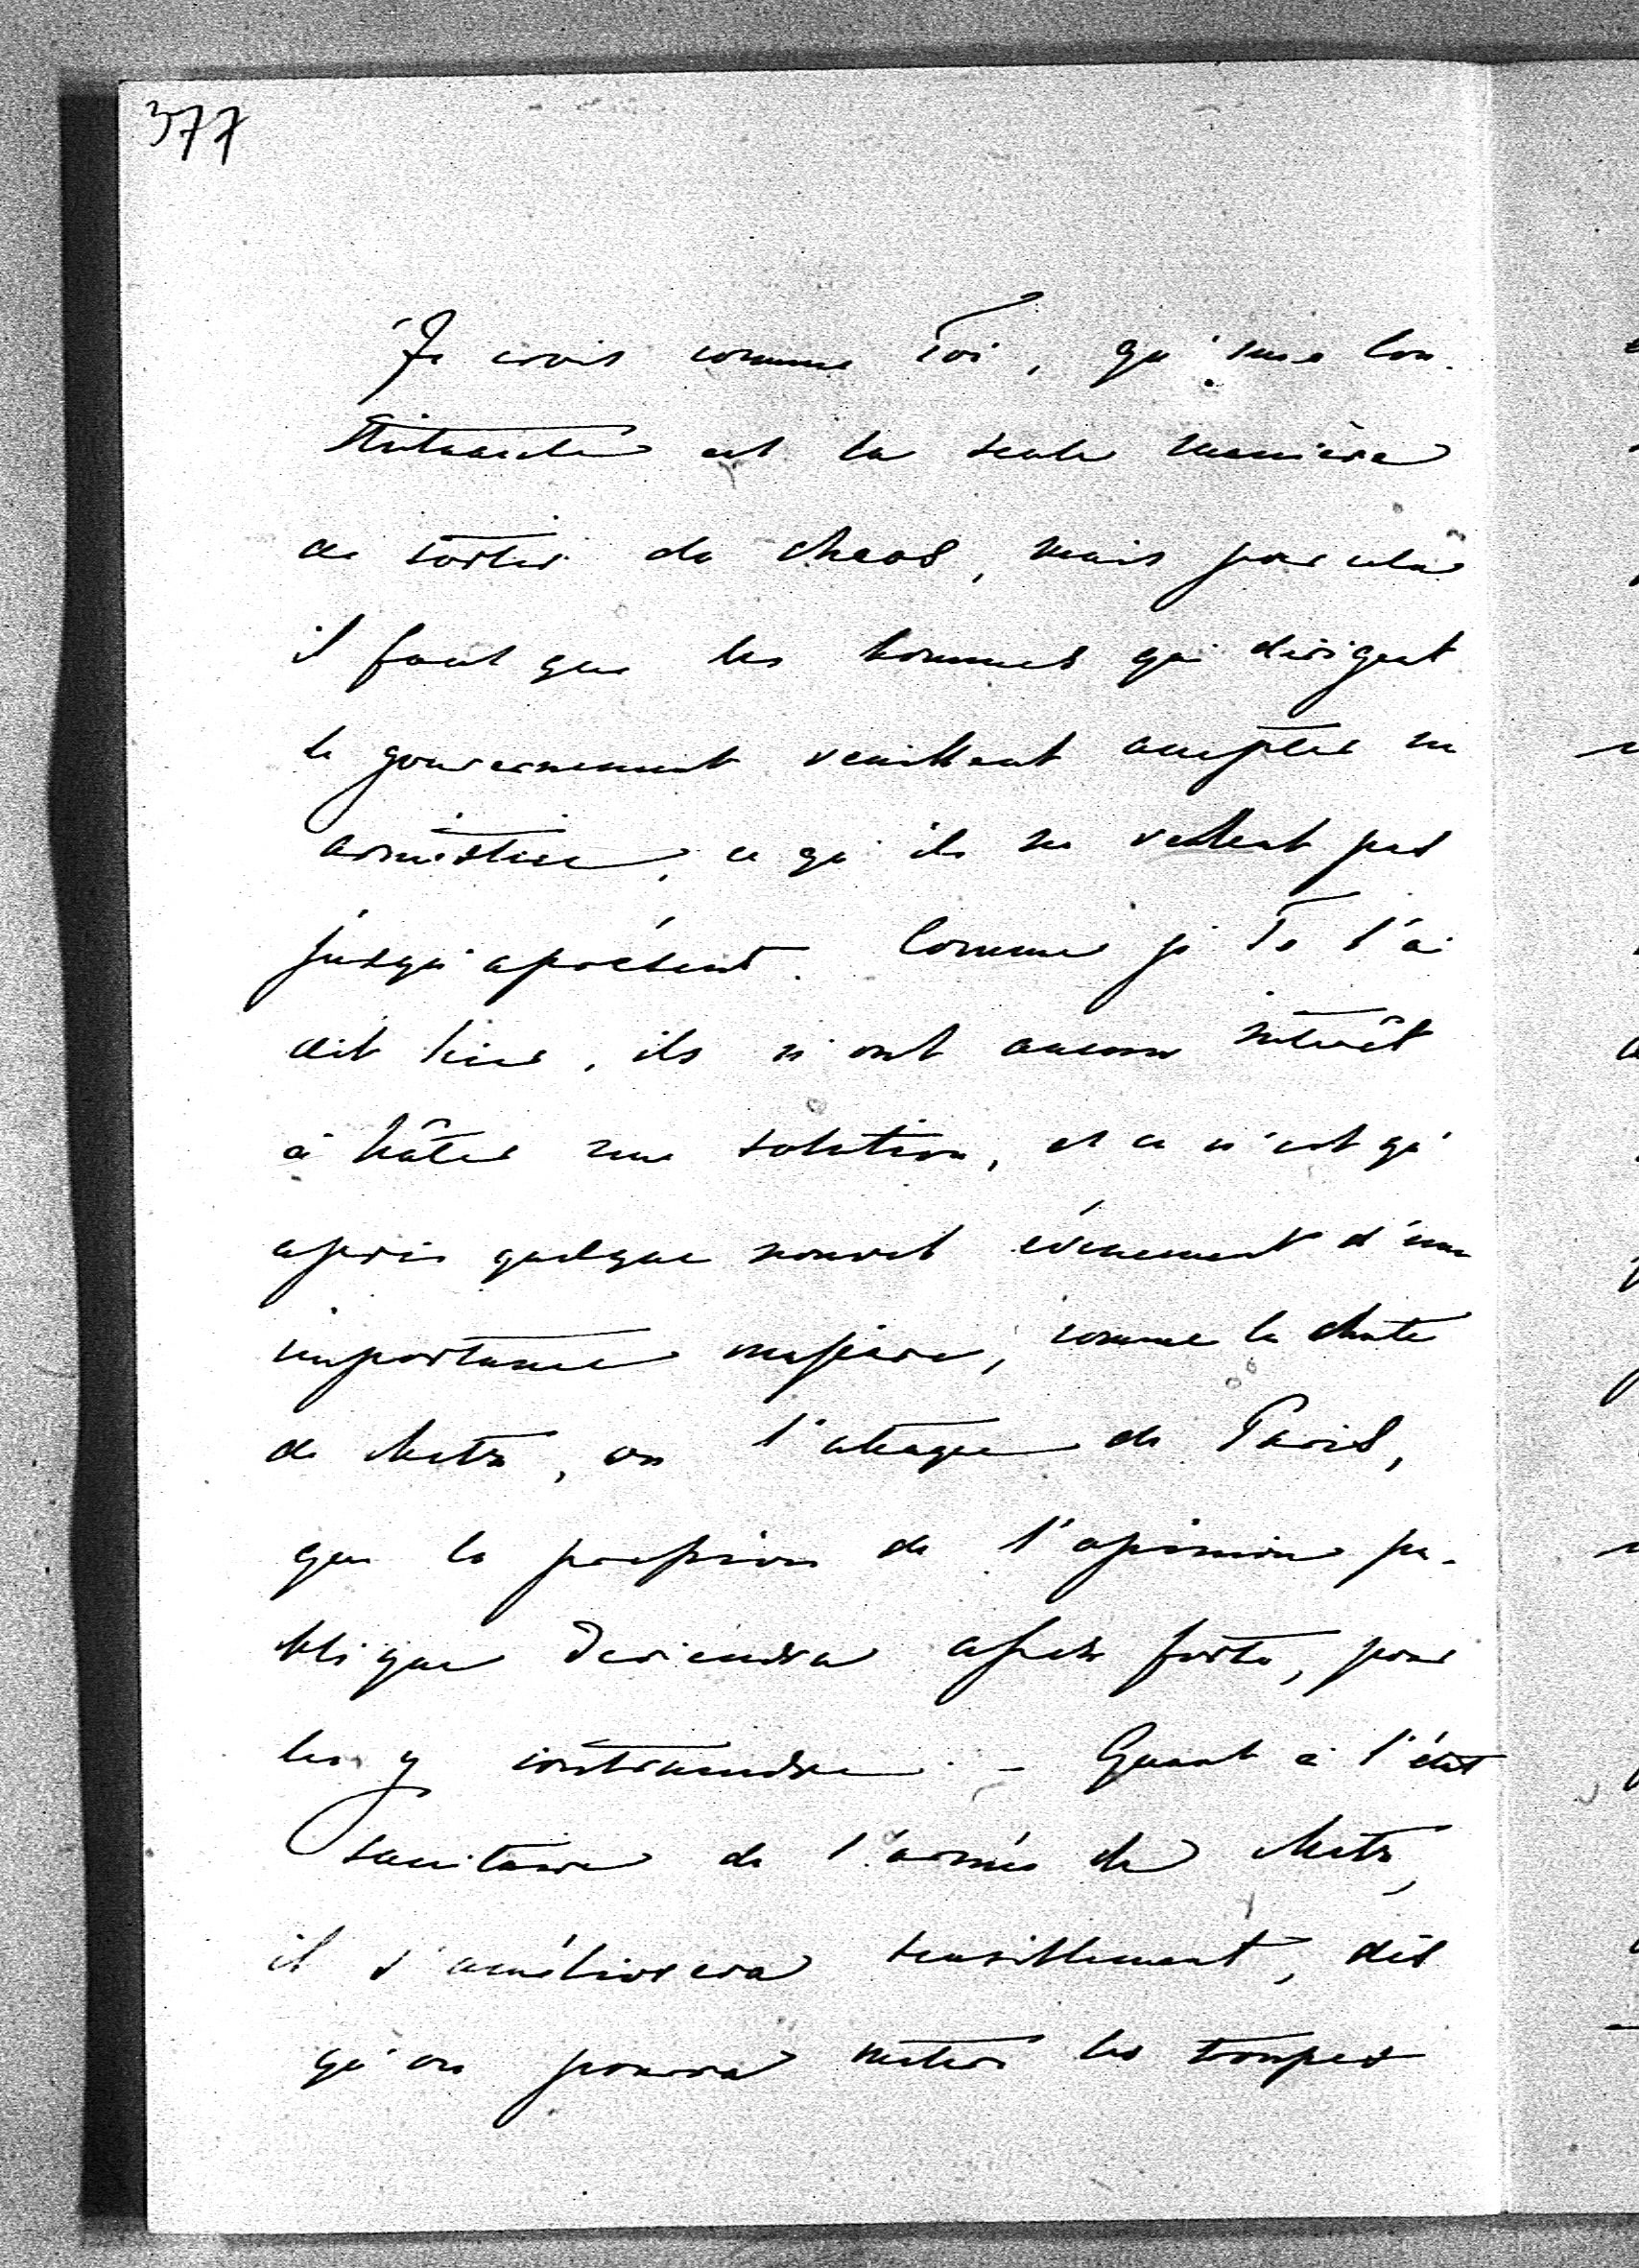 377
Je crois comme Toi, qu'une Con-
stituante est la seule manière
de sortir du chaos, mais pour cela
il faut que les hommes qui dirigent
le gouvernement veuillent accepter un
armistice, ce qu'ils ne veulent pas
jusqu'aprésent. Comme je Te l'ai
dit hier, ils n'ont aucun intérêt
à hâter une solution, et ce n'est qu'
après quelque nouvel événement d'une
importance majeure, comme la chute
de Metz, ou l'attaque de Paris,
que la pression de l'opinion pu-
blique deviendra assez forte, pour
les y contraindre. - Quant à l'état
sanitaire de l'armée de Metz,
il s'améliorera sensiblement, dès
qu'on pourra mettre les troupes